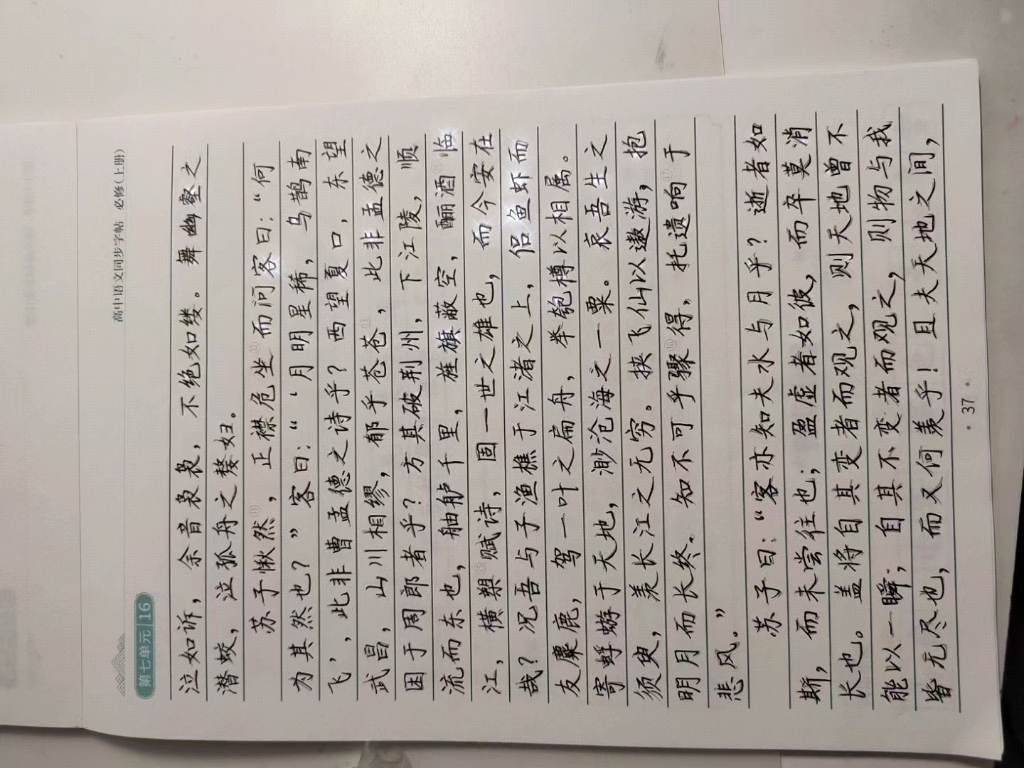 高中语文同步字帖 必修(上册)
第七单元 16
泣如诉，余音袅袅，不绝如缕。舞幽壑之
潜蛟，泣孤舟之嫠妇。
苏子愀然，正襟危坐而问客曰：“何
为其然也？”客曰：“‘月明星稀，乌鹊南
飞’，此非曹孟德之诗乎？西望夏口，东望
武昌，山川相缪，郁乎苍苍，此非孟德之
困于周郎者乎？方其破荆州，下江陵，顺
流而东也，舳舻千里，旌旗蔽空，酾酒临
江，横槊赋诗，固一世之雄也，而今安在
哉？况吾与子渔樵于江渚之上，侣鱼虾而
友麋鹿，驾一叶之扁舟，举匏樽以相属。
寄蜉蝣于天地，渺沧海之一粟。哀吾生之
须臾，羡长江之无穷。挟飞仙以遨游，抱
明月而长终。知不可乎骤得，托遗响于
悲风。”
苏子曰：“客亦知夫水与月乎？逝者如
斯，而未尝往也；盈虚者如彼，而卒莫消
长也。盖将自其变者而观之，则天地曾不
能以一瞬；自其不变者而观之，则物与我
皆无尽也，而又何羡乎！且夫天地之间，
37